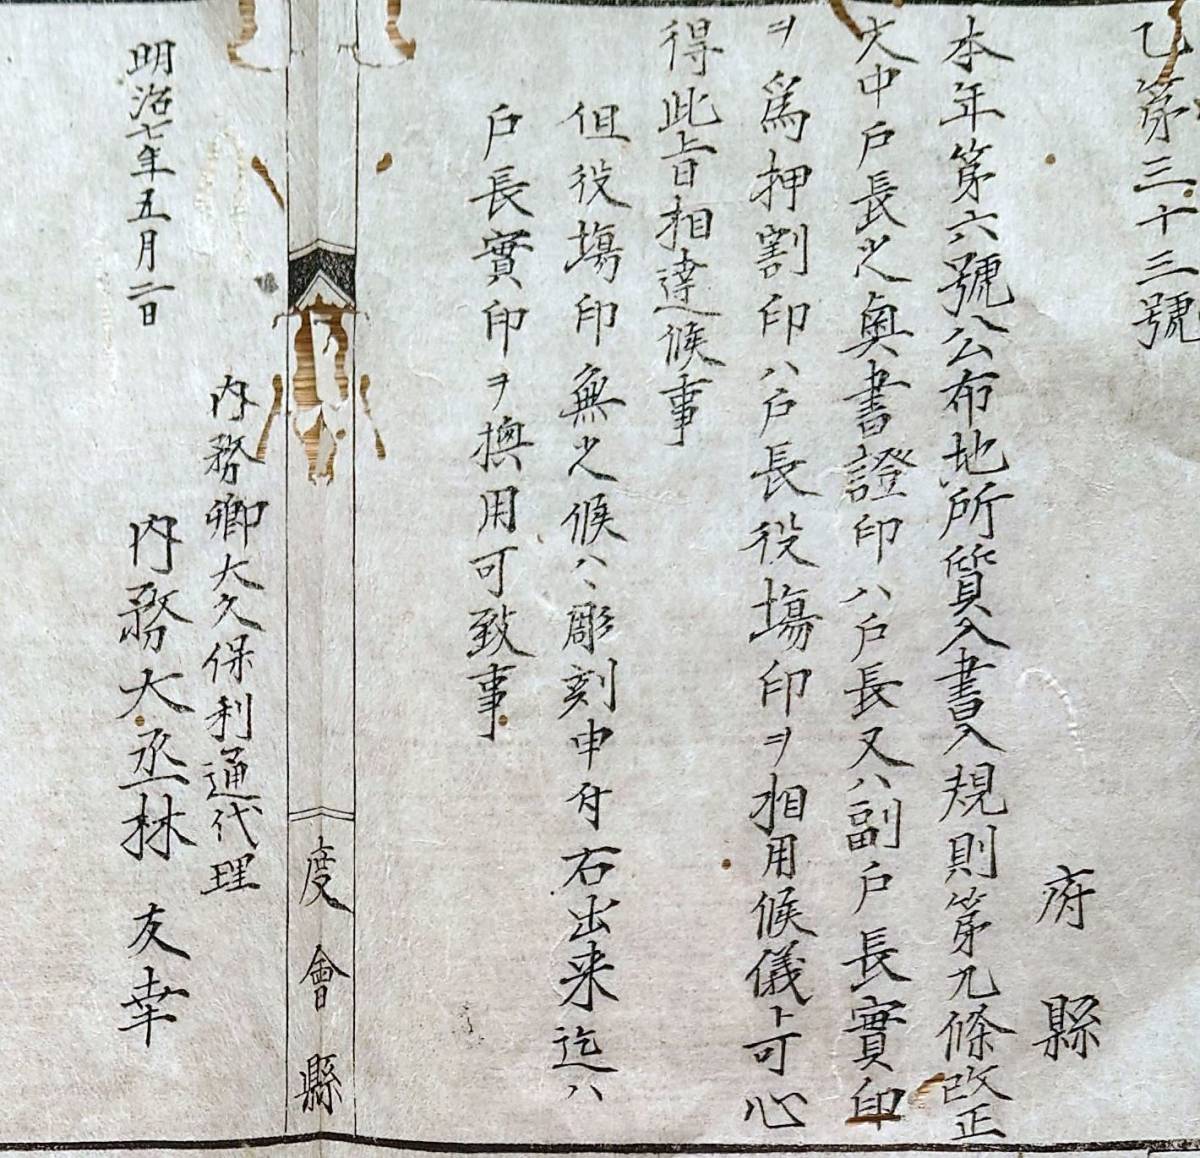 乙第三十三號
府縣
本年第六號公布地所質入書入規則第九條改正
大中戸長之奥書證印ハ戸長又ハ副戸長實印
ヲ爲押割印ハ戸長役場印ヲ相用候儀ト可心
得此旨相達候事
但役場印無之候ハヽ彫刻申付右出来迄ハ
戸長實印ヲ換用可致事
度會縣
内務卿大久保利通代理
明治七年五月二日
内務大丞林友幸